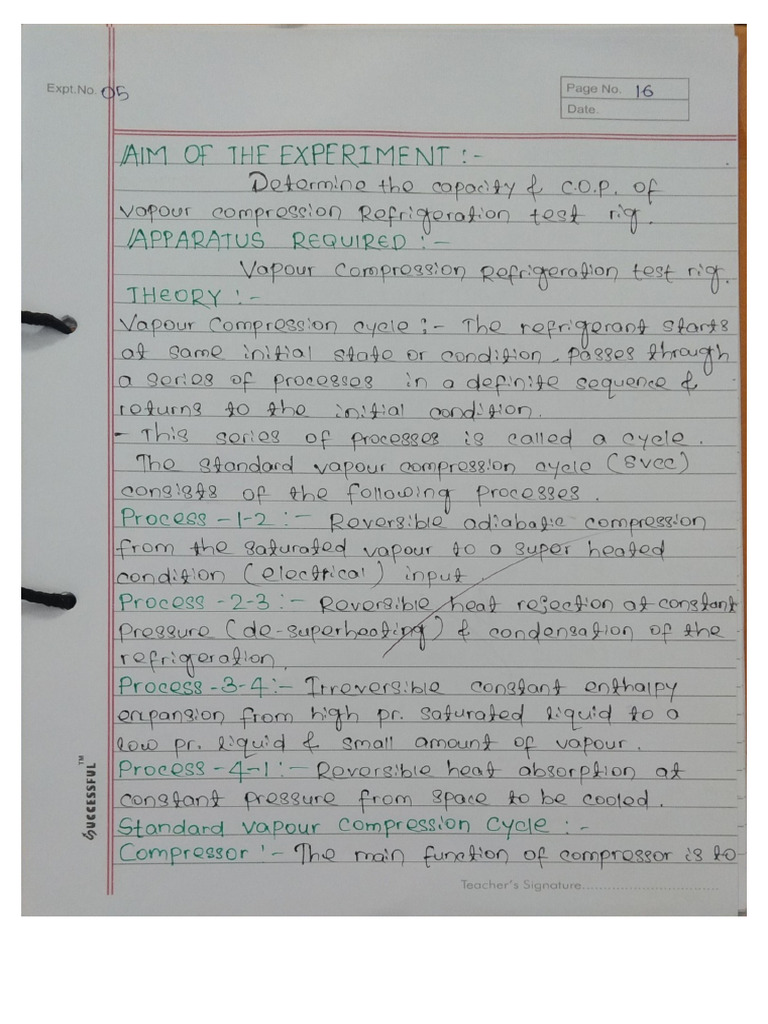 Expt.No. 05
Page No. 16
Date.
AIM OF THE EXPERIMENT :-
Determine the capacity & C.O.P. of
vapour compression Refrigeration test rig.
APPARATUS REQUIRED :-
Vapour compression Refrigeration test rig.
THEORY :-
Vapour Compression cycle :- The refrigerant starts
at same initial state or condition. passes through
a series of processes in a definite sequence &
returns to the initial condition.
- This series of processes is called a cycle.
The standard vapour compression cycle (SVCC)
consists of the following processes.
Process -1-2 :- Reversible adiabatic compression
from the saturated vapour to a super heated
condition (electrical) input.
Process -2-3 :- Reversible heat rejection at constant
pressure (de-superheating) & condensation of the
refrigeration.
Process -3-4 :- Irreversible constant enthalpy
expansion from high pr. saturated liquid to a
low pr. liquid & small amount of vapour.
Process -4-1 :- Reversible heat absorption at
constant pressure from space to be cooled.
Standard vapour compression cycle :-
Compressor :- The main function of compressor is to
SUCCESSFUL™
Teacher's Signature................................